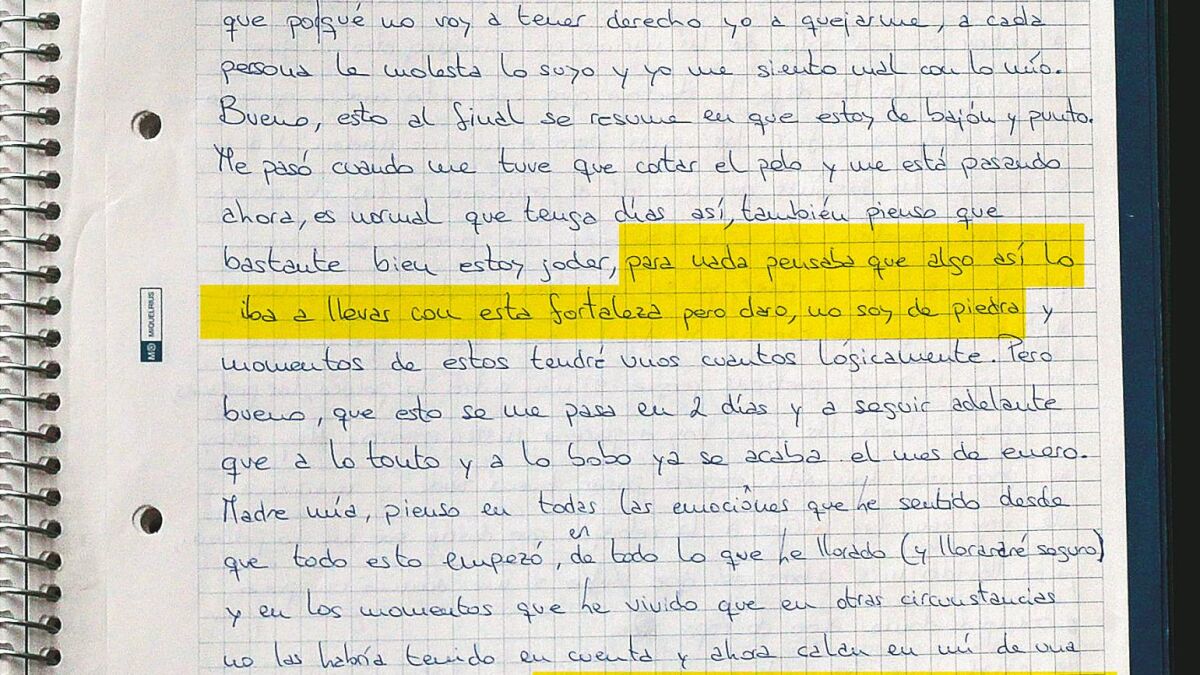 que porqué no voy a tener derecho yo a quejarme, a cada
persona le molesta lo suyo y yo me siento mal con lo mío.
Bueno, esto al final se resume en que estoy de bajón y punto.
Me pasó cuando me tuve que cortar el pelo y me está pasando
ahora, es normal que tenga días así, también pienso que
bastante bien estoy joder, para nada pensaba que algo así lo
iba a llevar con esta fortaleza pero claro, no soy de piedra y
momentos de estos tendré unos cuantos lógicamente. Pero
bueno, que esto se me pasa en 2 días y a seguir adelante
que a lo tonto y a lo bobo ya se acaba el mes de enero.
Madre mía, pienso en todas las emociones que he sentido desde
que todo esto empezó, en de todo lo que he llorado (y lloraré seguro)
y en los momentos que he vivido que en otras circunstancias
no las habría tenido en cuenta y ahora calan en mí de una
MIQUELRIUS